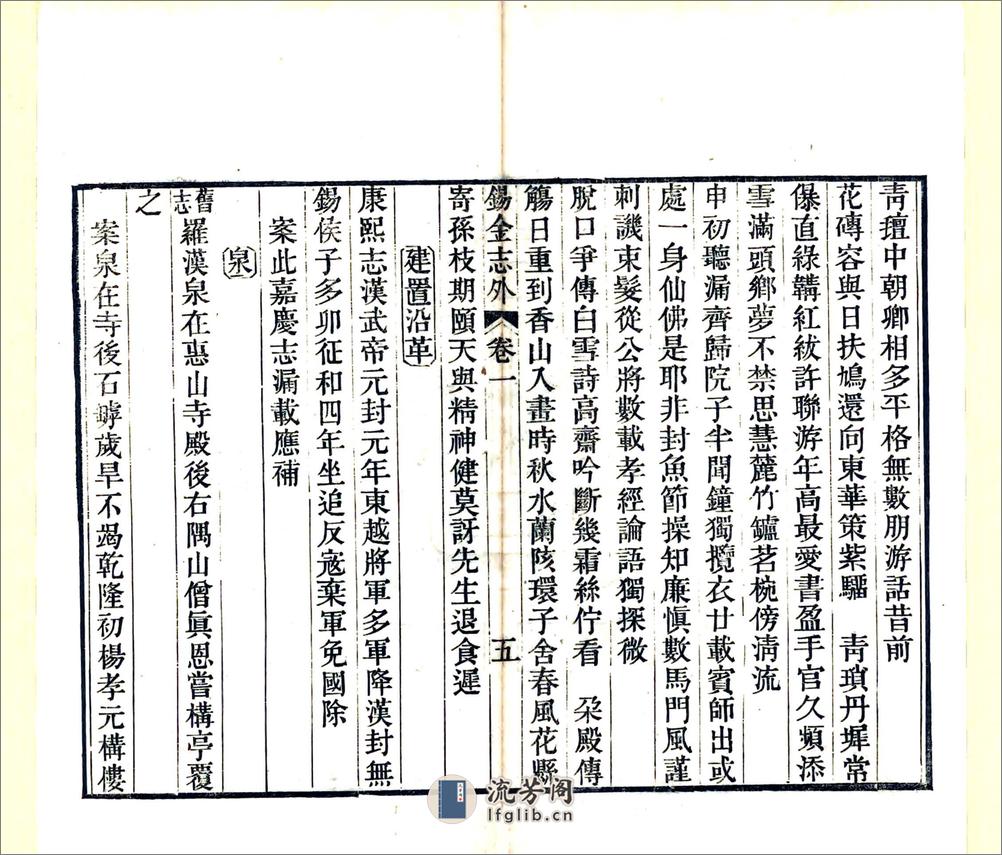 靑䢿中朝卿相多平格無數朋游話昔前
花磚容與日扶鳩還向東華策紫騮　靑瑣丹墀常
儤直綠鞲紅紱許聯游年高最愛書盈手官久頻添
雪滿頭鄉夢不禁思慧麓竹罏茗椀傍淸流
申初聽漏齊歸院子半聞鐘獨攬衣廿載賓師出或
處一身仙佛是耶非封魚節操知廉愼數馬門風謹
刺譏束髮從公將數載孝經論語獨探微
脫口爭傳白雪詩高齋吟斷幾霜絲佇看　朵殿傳
觴日重到香山入畫時秋水蘭陔環子舍春風花縣
錫金志外　卷一　五
寄孫枝期頤天與精神健莫訝先生退食遲
建置沿革
康熙志漢武帝元封元年東越將軍多軍降漢封無
錫侯子多卯征和四年坐追反寇棄軍免國除
案此嘉慶志漏載應補
泉
舊志羅漢泉在惠山寺殿後右隅山僧眞恩嘗構亭覆
之
案泉在寺後石罅歲旱不竭乾隆初楊孝元構僂
流芳阁
lfglib.cn